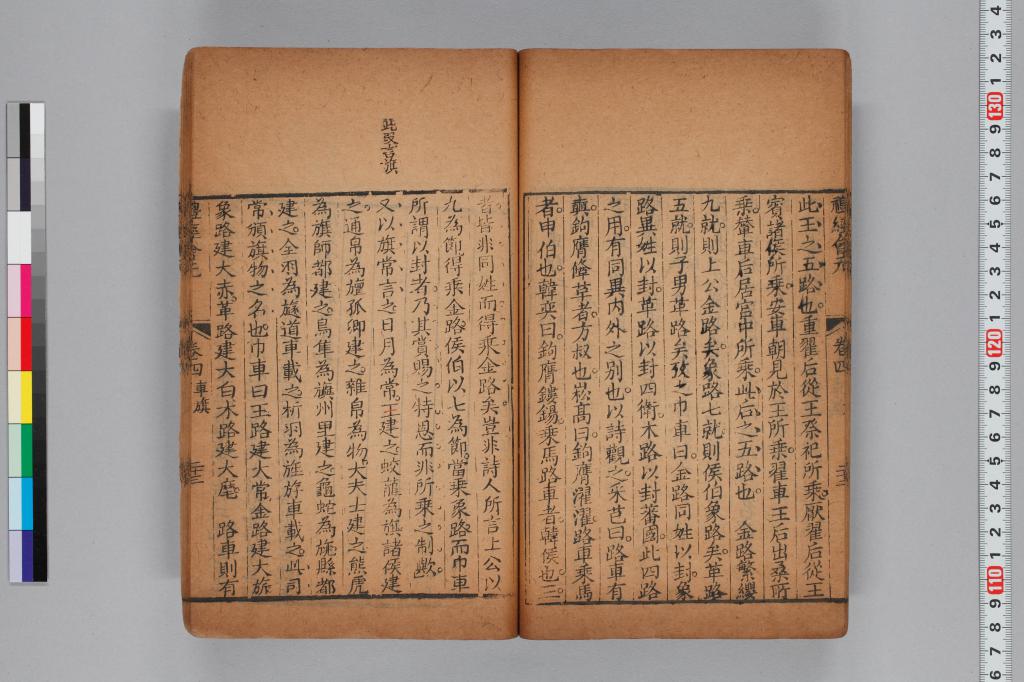 此王之五路也重翟后從王祭祀所乘厭翟后從王
賓諸侯所乘安車朝見於王所乘翟車王后出桑所
乘輦車后居宮中所乘此后之五路也 金路繁纓
九就則上公金路矣象路七就則侯伯象路矣革路
五就則子男革路矣攷之巾車曰金路同姓以封象
路異姓以封革路以封四衛木路以封蕃國此四路
之用有同異内外之別也以詩觀之采芑曰路車有
奭鉤膺鞗革者方叔也崧高曰鉤膺濯濯路車乘馬
者申伯也韓奕曰鉤膺鏤鍚乘馬路車者韓侯也三
者皆非同姓而得乘金路矣豈非詩人所言上公以
九為節得乘金路侯伯以七為節當乘象路而巾車
所謂以封者乃其賞賜之特恩而非所乘之制歟
又以旗常言之日月為常王建之蛟龍為旗諸侯建
之通帛為旜孤卿建之雜帛為物大夫士建之熊虎
為旗師都建之鳥隼為旟州里建之龜蛇為旐縣都
建之全羽為旞道車載之析羽為旌斿車載之此司
常頒旗物之名也巾車曰玉路建大常金路建大旂
象路建大赤革路建大白木路建大麾 路車則有
此段言旗
卷四 車旗
卷四